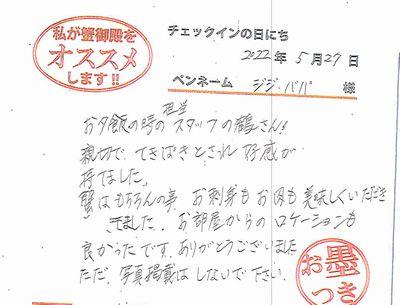 私が蟹御殿を
オススメ
します!!
チェックインの日にち
2022年 5月27日
ペンネーム ジジ・ババ 様
担当
お夕飯の時のスタッフの鶴さん!
親切で、てきぱきとされ 好感が
持てました。
蟹はもちろんの事 お刺身もお肉も美味しくいただき
きました。お部屋からのロケーションも
良かったです。ありがとうございました
ただ、写真掲載はしないで下さい。
お墨
つき